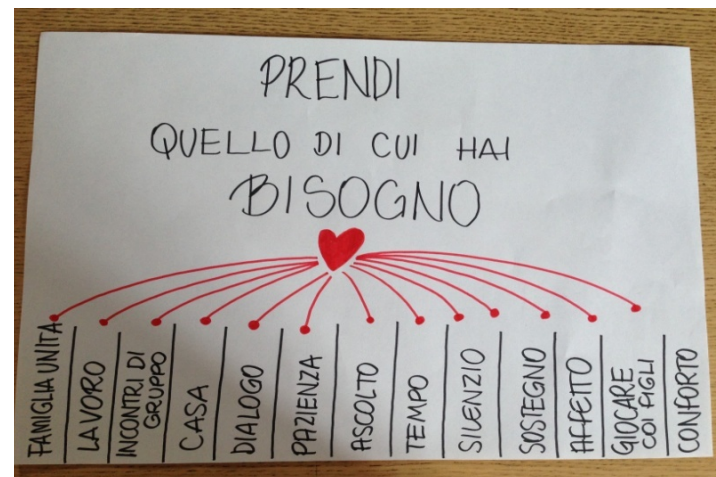 PRENDI
QUELLO DI CUI HAI
BISOGNO
FAMIGLIA UNITA
LAVORO
INCONTRI DI
GRUPPO
CASA
DIALOGO
PAZIENZA
ASCOLTO
TEMPO
SILENZIO
SOSTEGNO
AFFETTO
GIOCARE
COI FIGLI
CONFORTO